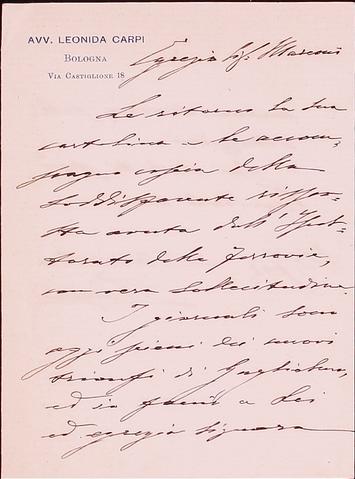 AVV. LEONIDA CARPI
BOLOGNA
VIA CASTIGLIONE 18
Egregio Sig. Marconi
Le ritorno la sua
cartolina e le accom,
pagno copia della
soddisfacente rispo,
sta avuta dall'Ispet,
torato delle Ferrovie,
con vera sollecitudine.
I giornali sono
oggi pieni dei nuovi
trionfi di Guglielmo,
ed io faccio a Lei
ed egregia Signora